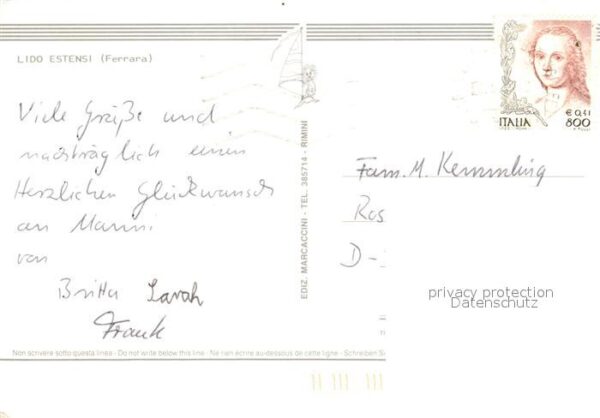 LIDO ESTENSI (Ferrara)
Viele Grüße und
nachträglich einen
Herzlichen Glückwunsch
an Manni
von
Britta Sarah
Frank
EDIZ. MARCACCINI - TEL. 385714 - RIMINI
Non scrivere sotto questa linea - Do not write below this line - Ne rien écrire au-dessous de cette ligne - Schreiben
ITALIA
€ 0,41
800
Fam. M. Kemmling
Ros
D-
privacy protection
Datenschutz